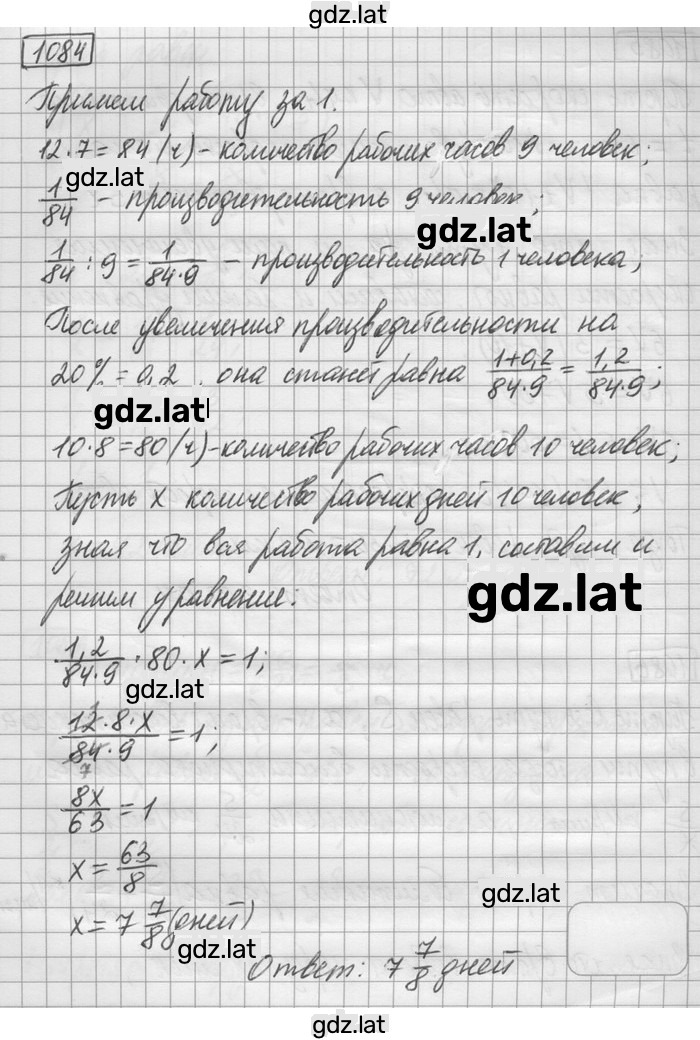 gdz.lat
1084
Примем работу за 1.
12·7=84(ч) - количество рабочих часов 9 человек;
gdz.lat
1/84 - производительность 9 человек;
gdz.lat
1/84 : 9 = 1/(84·9) - производительность 1 человека;
После увеличения производительности на
20% = 0,2, она станет равна (1+0,2)/(84·9) = 1,2/(84·9);
gdz.lat
10·8=80(ч) - количество рабочих часов 10 человек;
Пусть x количество рабочих дней 10 человек,
зная что вся работа равна 1, составим и
решим уравнение:
gdz.lat
1,2/(84·9) · 80 · x = 1;
gdz.lat
(12·8·x)/(84·9) = 1;
7
8x/63 = 1
x = 63/8
gdz.lat
x = 7 7/8 (дней)
gdz.lat
Ответ: 7 7/8 дней
gdz.lat